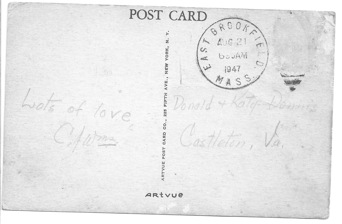 POST CARD
EAST BROOKFIELD.
AUG 21
1947
MASS.
Lots of love
Donald & Katy Dennis
Castleton, Va.
ARTVUE POST CARD CO., 225 FIFTH AVE., NEW YORK, N. Y.
ARTVUE